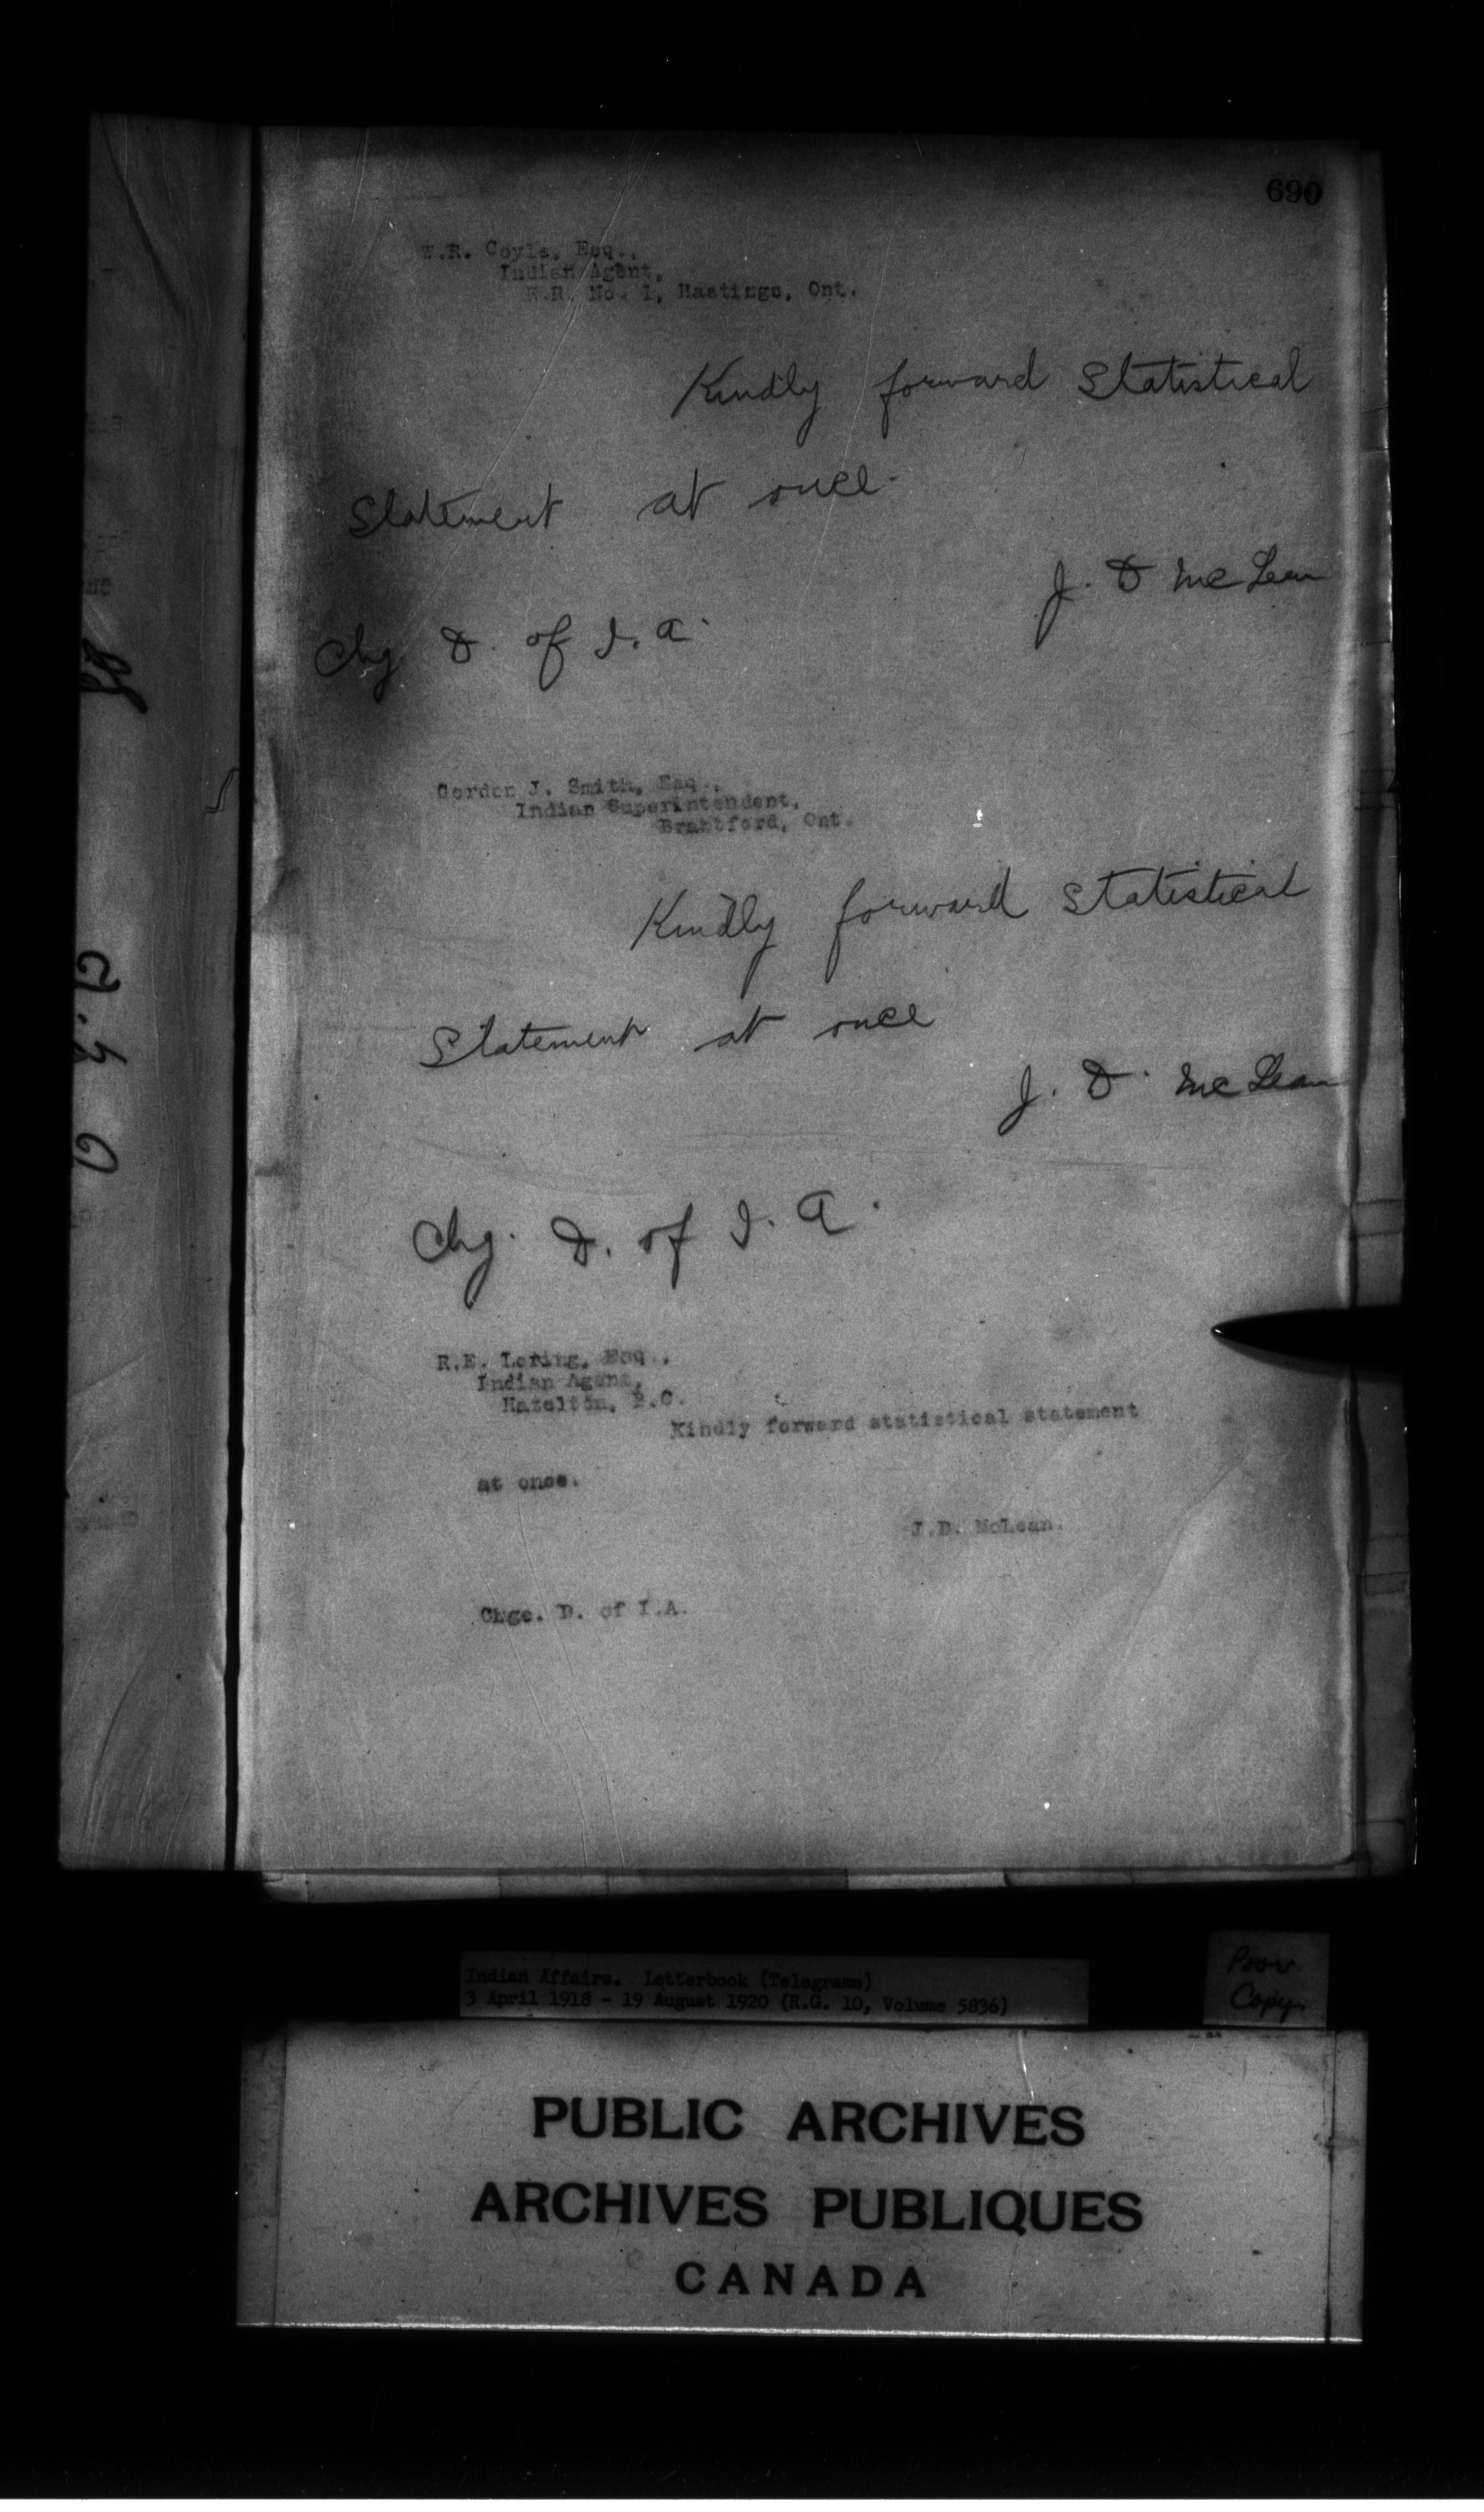 690
W.R. Coyle, Esq.,
Indian Agent,
R.R. No. 1, Hastings, Ont.
Kindly forward Statistical
Statement at once.
J. D McLean
Chg D. of I. A.
Gordon J. Smith, Esq.,
Indian Superintendent,
Brantford, Ont.
Kindly forward Statistical
Statement at once
J. D. McLean
Chg. D. of I. A.
R.E. Loring, Esq.,
Indian Agent,
Hazelton, B.C.
Kindly forward statistical statement
at once.
J.D. McLean.
Chge. D. of I.A.
Indian Affairs. Letterbook (Telegrams)
3 April 1918 - 19 August 1920 (R.G. 10, Volume 5836)
Poor
Copy.
PUBLIC ARCHIVES
ARCHIVES PUBLIQUES
CANADA